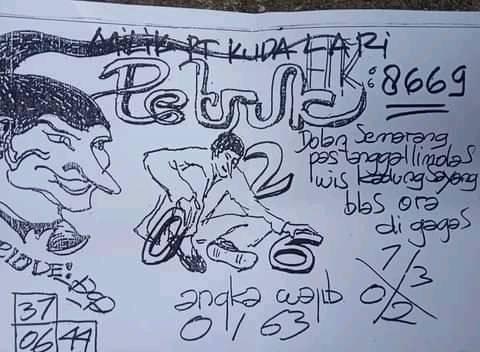 MILIK PT KUDA LARI
Petruk HK: 8669
Dolan Semarang
pas tanggal limolas
wis kadung sayang
blas ora
di gagas
2
0 6
1
0 3
2
angka wajib
0163
37
06 44